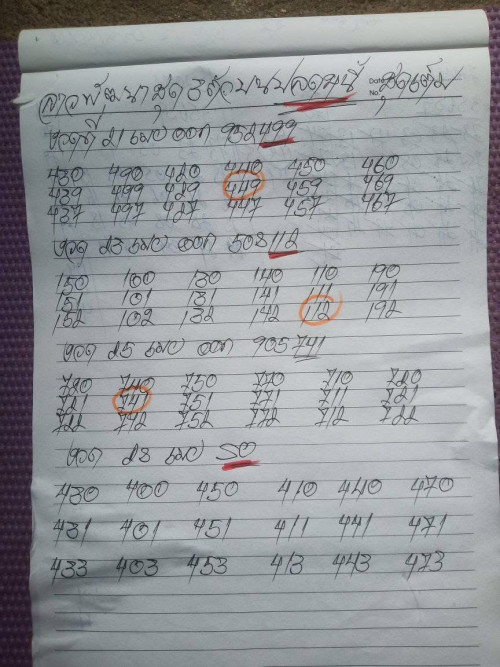 ลาวพัฒนาชุด 3ตัวบนปลดหนี้ ชุดเต็ม
Date
No
งวดที่ 21 เมย ออก 952499
430 490 420 440 450 460
439 499 429 449 459 469
437 497 427 447 457 467
งวด 23 เมย ออก 508112
150 100 130 140 110 190
151 101 131 141 111 191
152 102 132 142 112 192
งวด 25 เมย ออก 905741
730 740 750 770 710 720
721 741 751 771 711 721
722 742 752 772 712 722
งวด 28 เมย รอ
430 400 450 410 440 470
431 401 451 411 441 471
433 403 453 413 443 473